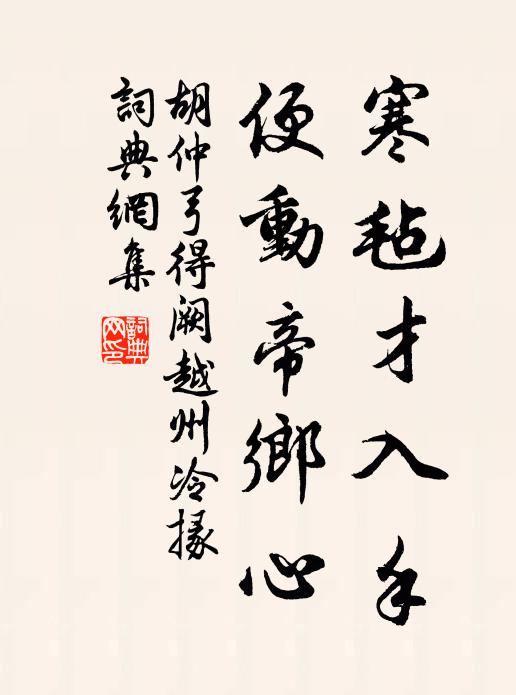 寒毡才入手
便動帝鄉心
胡仲弓得闕越州冷掾
詞典網集
詞典網印